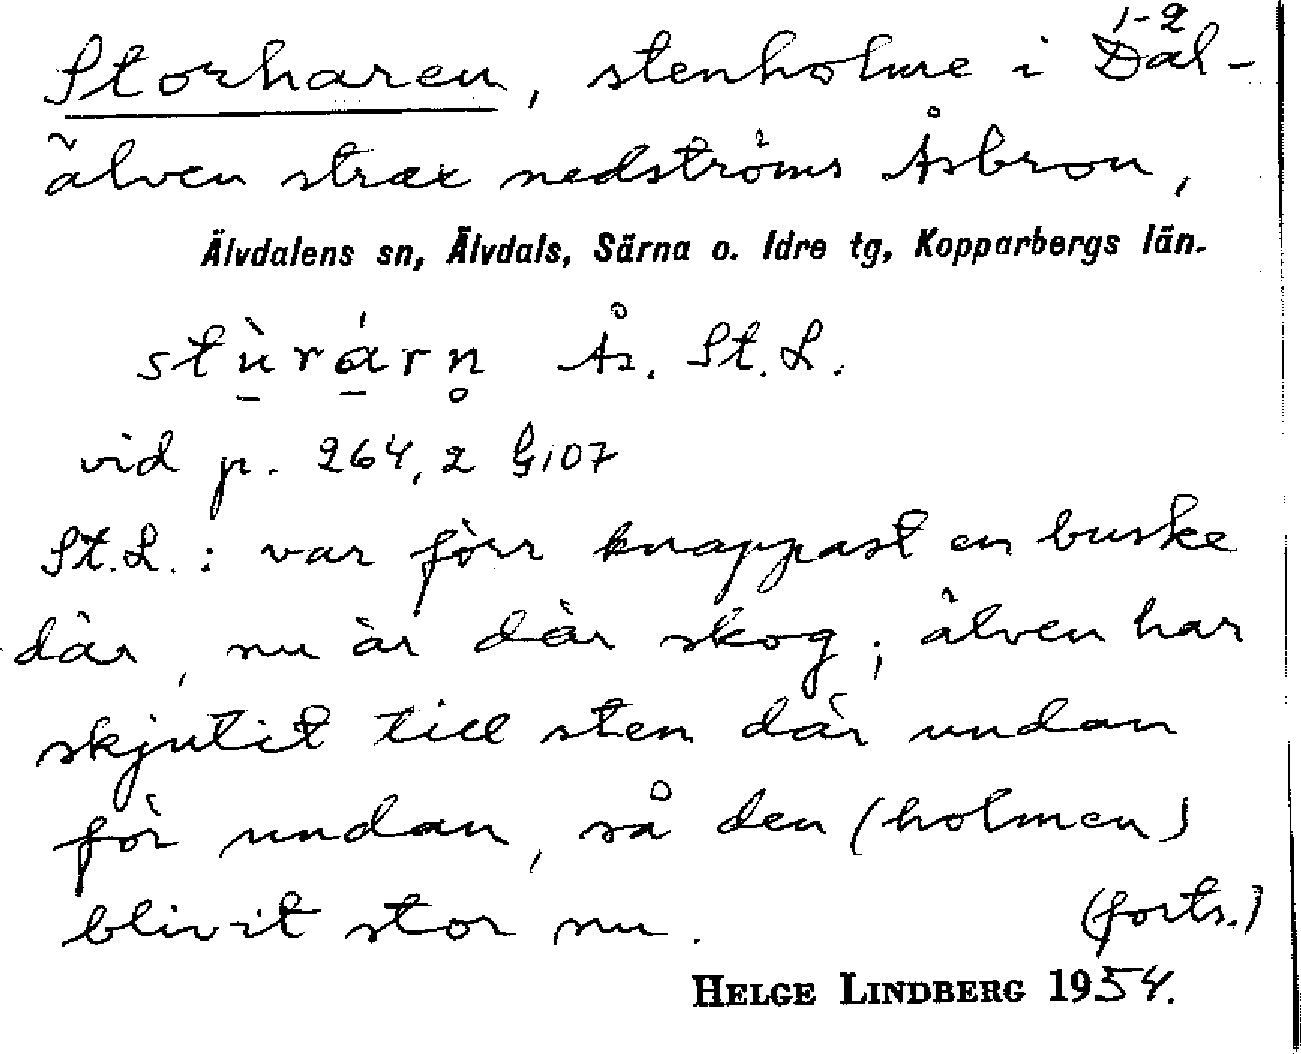 1-2
Storharen, stenholme i Dal-
älven strax nedströms Åsbron,
Älvdalens sn, Älvdals, Särna o. Idre tg, Kopparbergs län.
stù̱rá̱rn̥ Ås. St. L.
vid p. 264,2 G107
St. L. : var förr knappast en buske
där, nu är där skog; älven har
skjutit till sten där undan
för undan, så den (holmen)
blivit stor nu.
(forts.)
HELGE LINDBERG 1954.